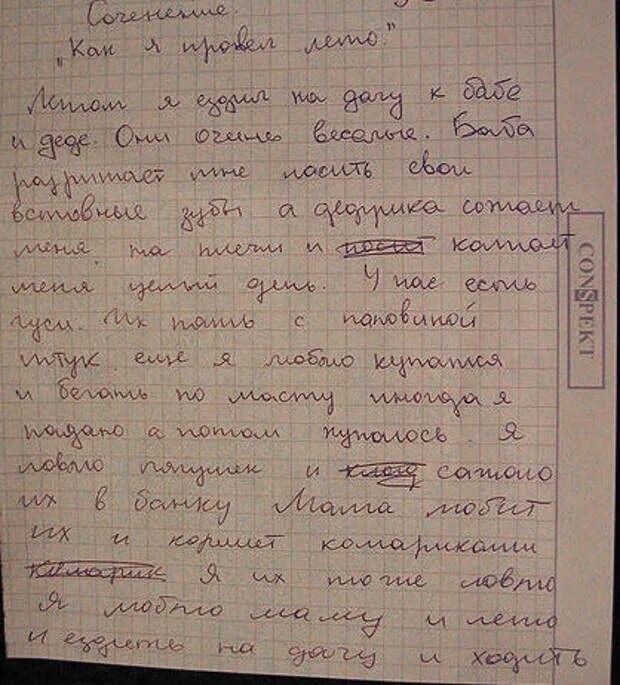 Соченение.
"Как я провел лето."
Летом я ездил на дачу к бабе
и деде. Они очень веселые. Баба
разритает мне насить свои
вставные зубы а дедушка сожает
меня на плечи и катает
меня целый день. У нас есть
гуси. Их пять с паловиной
штук еще я люблю купатся
и бегать по масту иногда я
падаю а потом купалось. Я
ловлю лягушек и сажаю
их в банку Мама любит
их и кормит комариками
Я их тоже ловлю
Я люблю маму и лето
и ездить на дачу и ходить
CONSPEKT